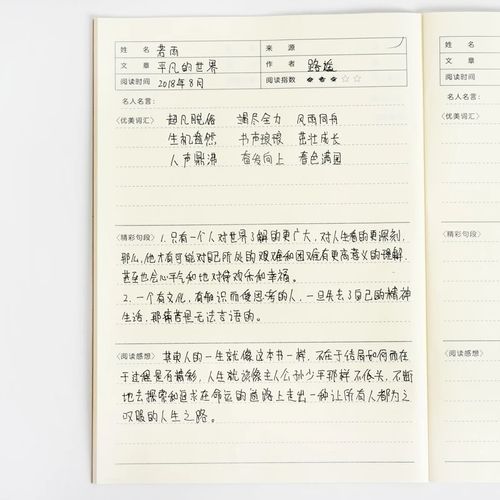 姓 名 若雨 来 源
文 章 平凡的世界 作 者 路遥
阅读时间 2018年8月 阅读指数
名人名言:
〈优美词汇〉 超凡脱俗 竭尽全力 风雨同舟
生机盎然 书声琅琅 茁壮成长
人声鼎沸 奋发向上 春色满园
〈精彩句段〉 1.只有一个人对世界了解的更广大,对人生看的更深刻,
那么,他才有可能对自己所处的艰难和困难有更高意义的理解,
甚至也会心平气和地对待欢乐和幸福。
2.一个有文化,有知识而像思考的人,一旦失去了自己的精神
生活,那痛苦是无法言语的。
〈阅读感想〉 其实人的一生就像这本书一样,不在于结局如何而在
于过程是否精彩,人生就该像主人公孙少平那样不低头,不断
地去探索和追求在命运的道路上走出一种让所有人都为之
叹服的人生之路。
姓 名
文 章
阅读时间
名人名言:
〈优美词汇〉
〈精彩句段〉
〈阅读感想〉